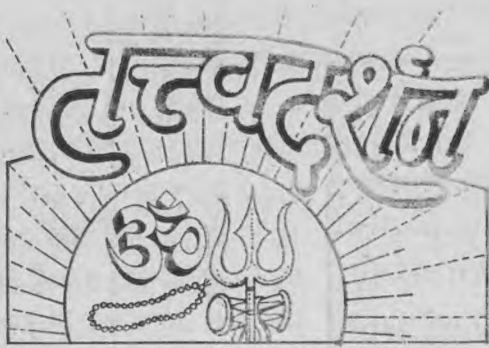 तत्त्वदर्शन
ॐ